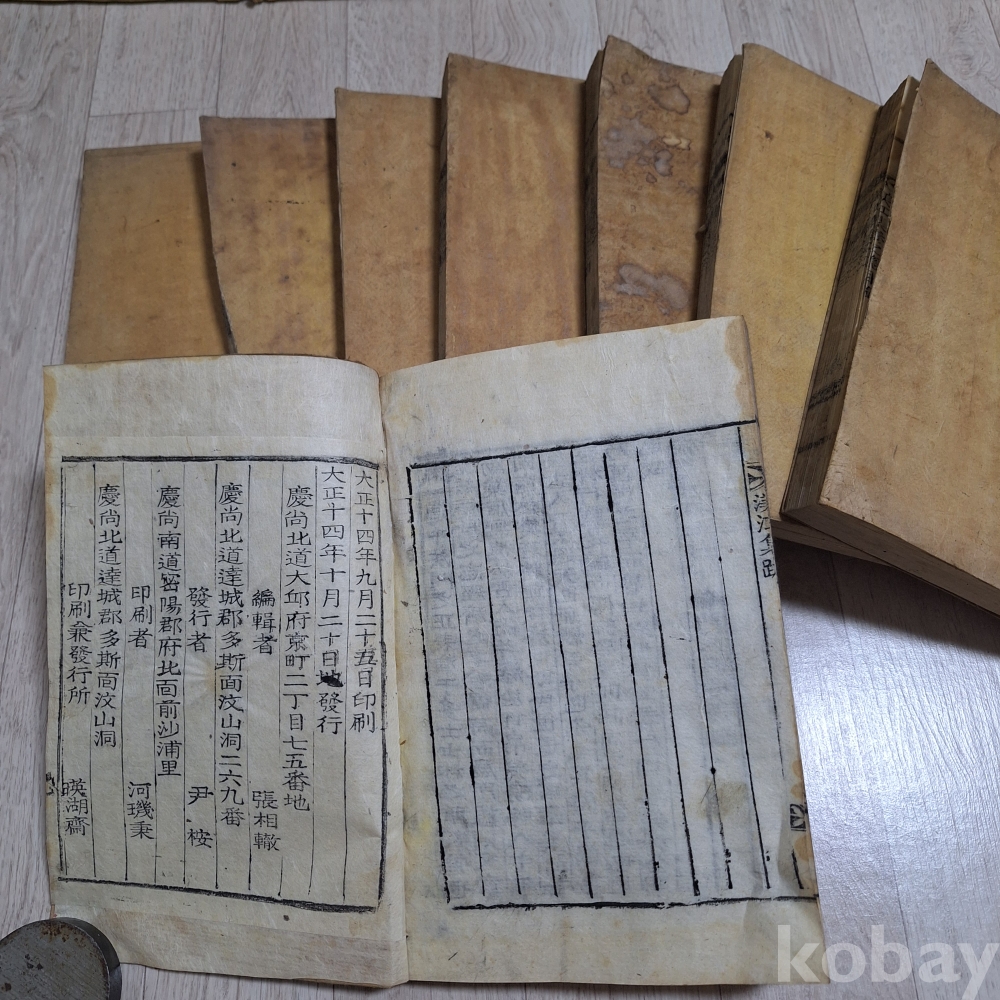 大正十四年九月二十五日印刷
大正十四年十月二十日發行
慶尙北道大邱府京町二丁目七五番地
編輯者 張相轍
慶尙北道達城郡多斯面汶山洞二六九番
發行者 尹桉
慶尙南道密陽郡府北面前沙浦里
印刷者 河璣秉
慶尙北道達城郡多斯面汶山洞
印刷兼發行所 暎湖齋
漢江集跋
kobay